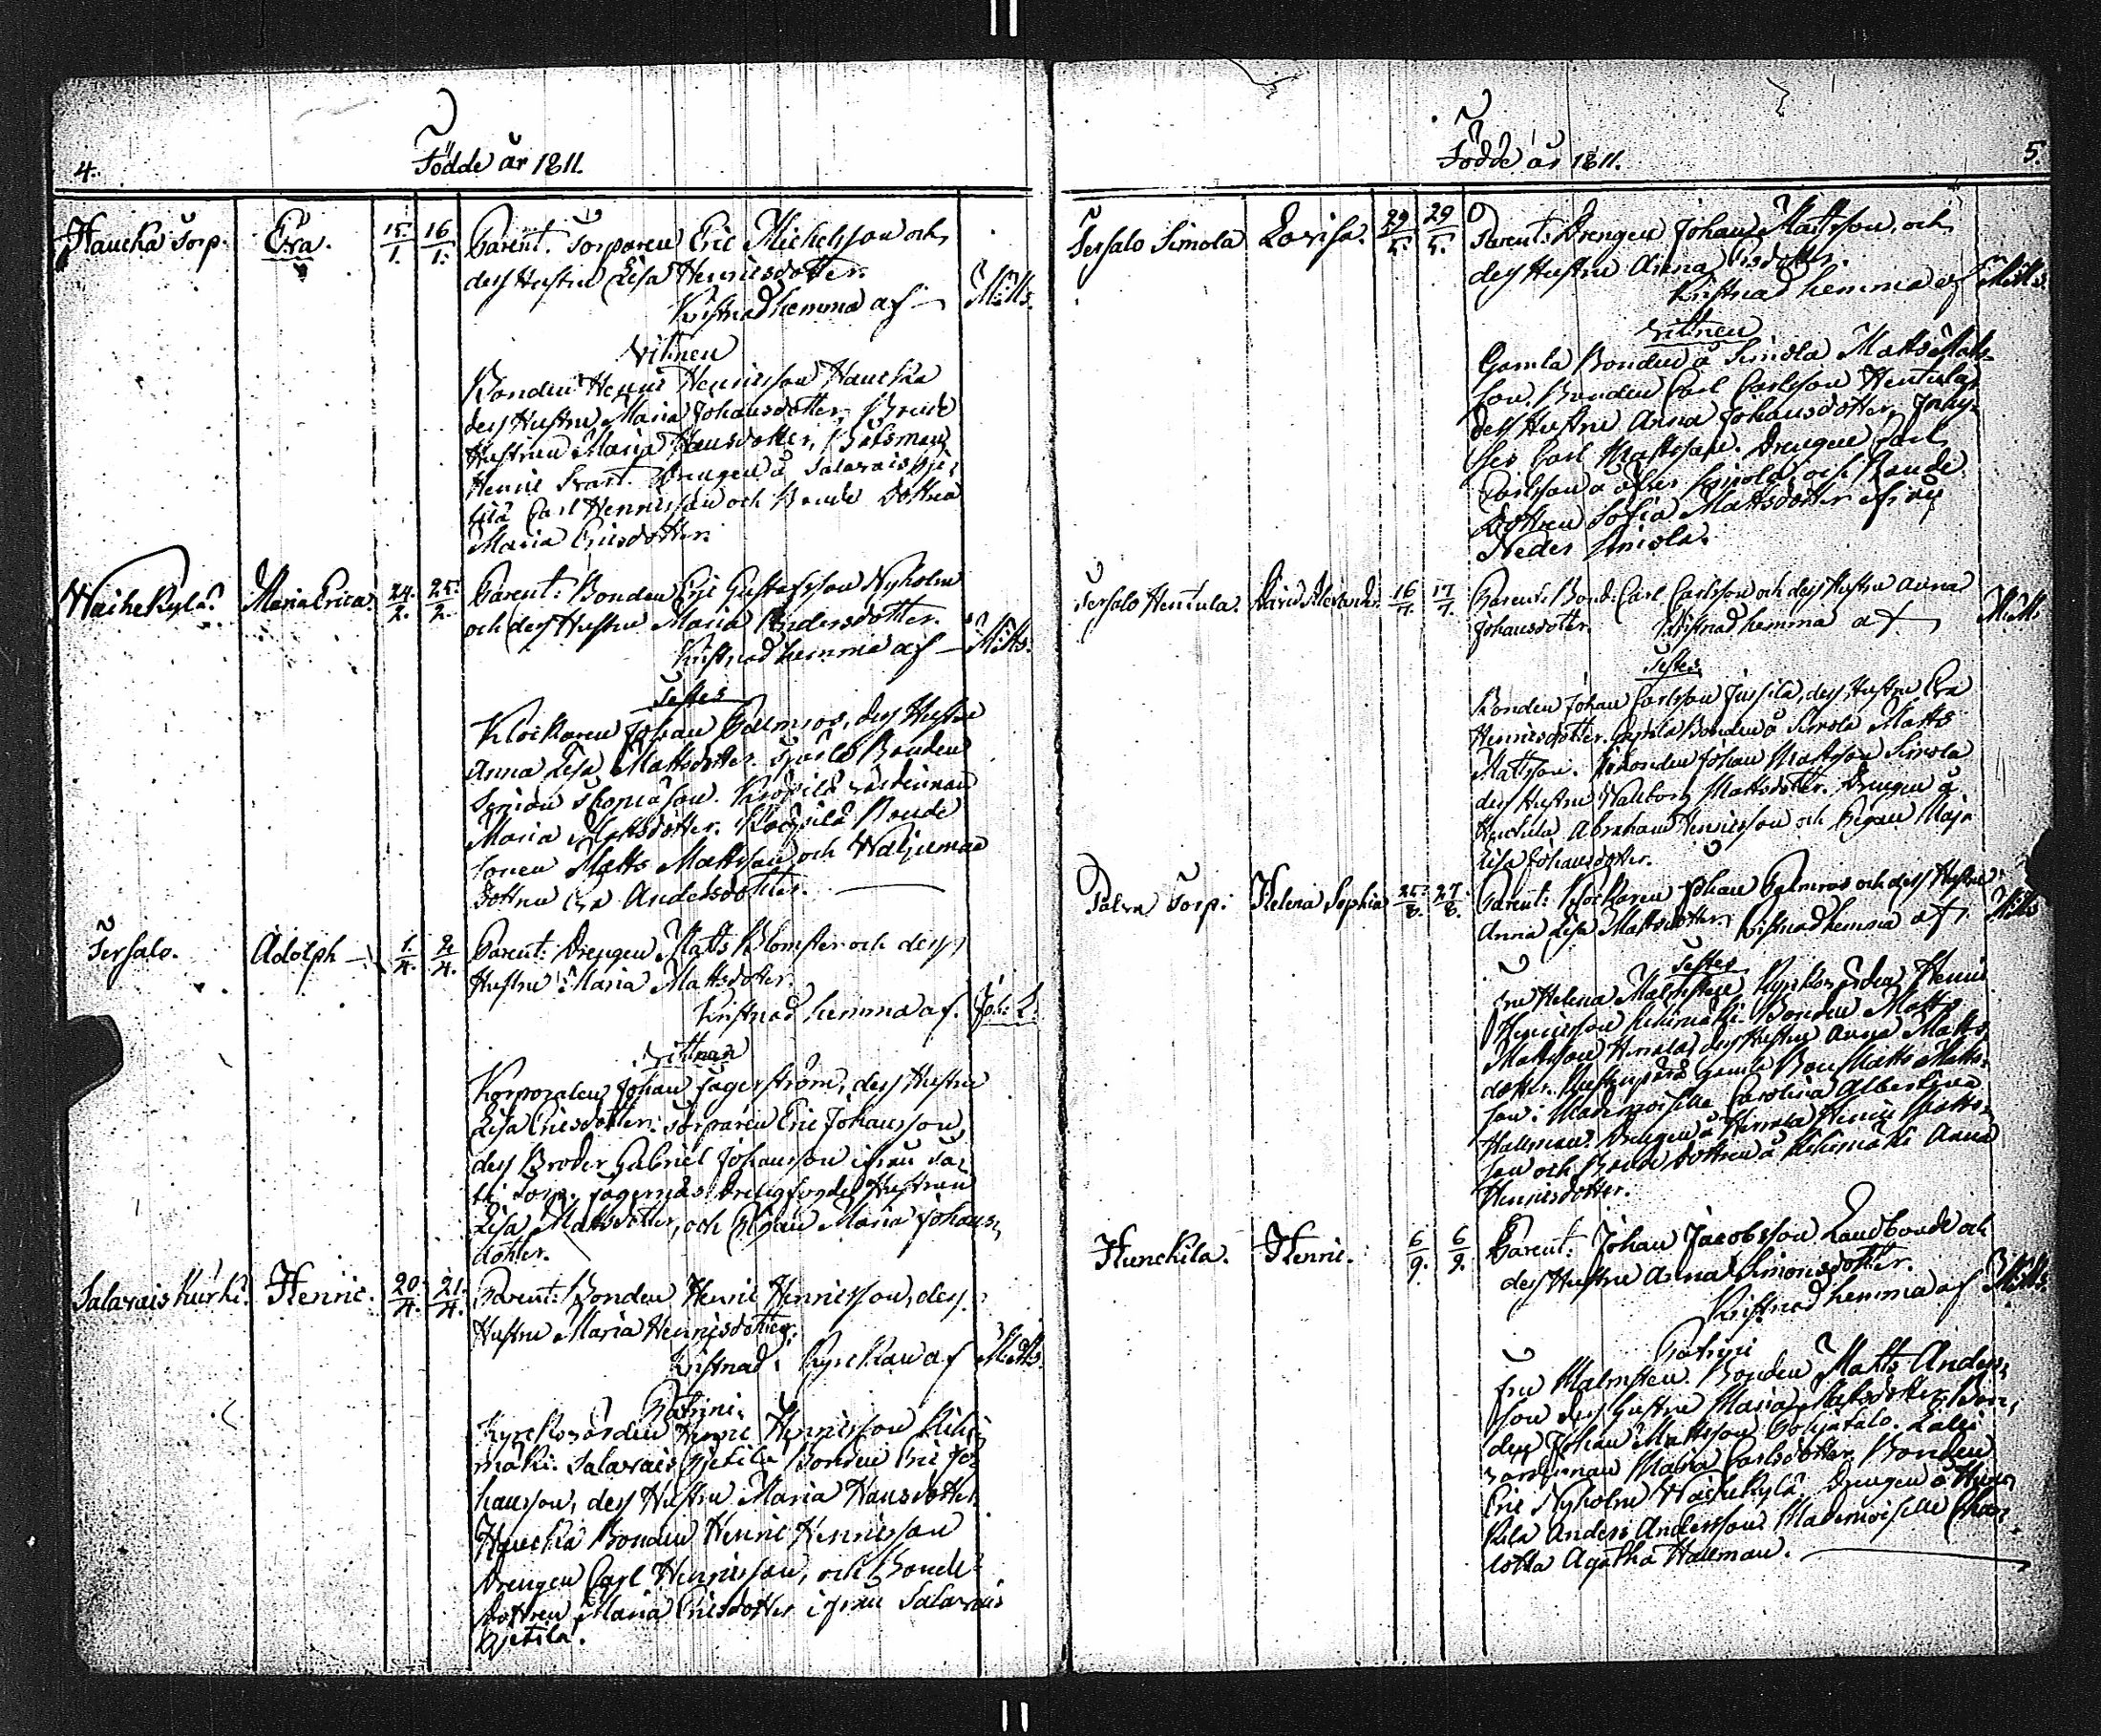 4.
Födde år 1811.
Haucka Torp. Eva. 15/1. 16/1. Parent. Torparen Eric Michelsson och
dess Hustru Lisa Henricsdotter.
Kristnad hemma af Matts.
Vitnen
Bonden Henric Henricsson Haucka
dess Hustru Maria Johansdotter, Bonde
Hustrun Maria Hansdotter, Båtsman
Henric Svart. Drengen å Salavais
Carl Henricsson och Bonde Dottren
Maria Ericsdotter.
Waihekylä. Maria Erica. 24./2. 25./2. Parent: Bonden Eric Gustafsson Nyholm
och dess Hustru Maria Andersdotter.
Kristnad hemma af Matts.
Testes
Klockaren Johan Palmros, dess Hustru
Anna Lisa Mattsdotter. Bonden
Simon
Maria Mattsdotter. Bonde
Sonen Matts Mattsson och
Dottren Eva Andersdotter.
Tersalo. Adolph 1./4. 2/4. Parent: Drengen Matts Blomster och dess
Hustru Maria Mattsdotter.
Kristnad hemma af Joh: L.
Vittnen
Korporalen Johan Fagerström, dess Hustru
Lisa Ericsdotter: Torparen Eric Johansson,
dess Broder Gabriel Johansson ifrån
Torp. Hustrun
Lisa Mattsdotter, och Pigan Maria Johans-
dotter.
Salavais Kurki. Henric. 20./4. 21./4. Parent: Bonden Henric Henricsson, dess
Hustru Maria Henricsdotter.
Kristnad i Kyrckan af Matts.
Patrini.
Kyrckovärden Henric Henricsson Kihi-
mäki. Salavais Bonden Eric Jo-
hansson, dess Hustru Maria Hansdotter
Haucka Bonden Henric Henricsson
Drengen Carl Henricsson, och Bonde-
Dottren Maria Ericsdotter ifrån Salavais
5.
Födde år 1811.
Tersalo Simola Lovisa. 29/5. 29/5. Parent: Drengen Johan Mattsson, och
dess Hustru Anna
Kristnad hemma af Matts.
Vittnen
Gamla Bonden å Simola Matts Matts-
son. Bonden Carl Carlsson Hentula,
dess Hustru Anna Johansdotter,
Carl Mattsson. Drengen Carl
Carlsson å Simola och Bonde
Dottren Sofia Mattsdotter ifrån
Neder Simola.
Tersalo Hentula. David Alexander. 16/7. 17/7. Parent: Bond: Carl Carlsson och dess Hustru Anna
Johansdotter. Kristnad hemma af Matts
Testes
Bonden Johan Carlsson Jussila, dess Hustru Eva
Henricsdotter. Gamla Bonden å Simola Matts
Mattsson. Johan Mattsson Simola
dess Hustru Walborg Mattsdotter. Drengen å
Hentula Abraham Henricsson och Pigan Maja
Lisa Johansdotter.
Torp. Helena Sophia 25/8. 27/8. Parent: Klockaren Johan Palmros och dess Hustru
Anna Lisa Mattsdotter. Kristnad hemma af Matts
Testes
Fru Helena Malmsten, Kyrkovärden Henric
Henricsson Kihimäki. Bonden Matts
Mattsson dess Hustru Anna Matts-
dotter. gamle Matts Matts-
son. Mademoiselle Carolina Albertina
Hallman. Drengen å Henric Matts-
son och Bonde Dottren å Kihimäki Anna
Henricsdotter.
Hunckila. Henric. 6/9. 6/9. Parent: Johan Jacobsson Landbonde och
dess Hustru Anna Simonsdotter.
Kristnad hemma af Matts.
Patrini
Fru Malmsten. Bonden Matts Anders-
son dess Hustru Maria Mattsdotter, Bon-
den Johan Mattsson Pohjatalo.
Maria Carlsdotter. Bonden
Eric Nyholm Waihekylä. Drengen å Hunc-
kila Anders Andersson. Mademoiselle Char-
lotta Agatha Hallman.